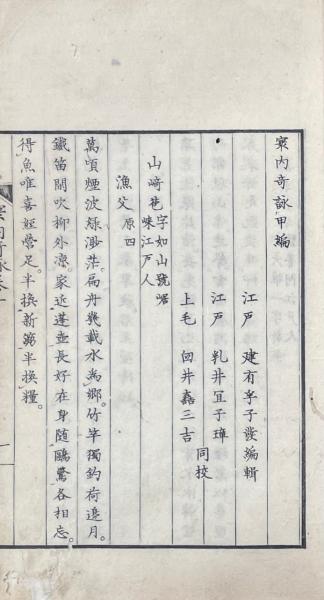 寰内奇詠甲編
江戸 建有孚子發編輯
江戸 乳井宜子璋
上毛 臼井嘉三吉 同校
山﨑苞 字如山號嗒
昧江戸人
漁父 原四
萬頃煙波緑渺茫。扁舟幾載水為鄉。竹竿獨釣荷邊月。
鐵笛閒吹柳外凉。家近蓬壺長好在身隨鷗鷺各相忘。
得魚唯喜經營足。半換新篘半換糧。